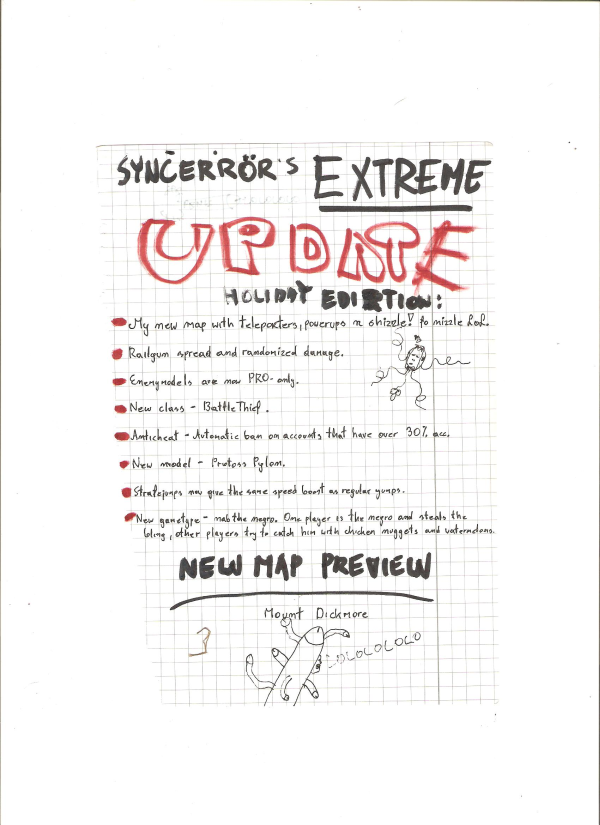 SYNCERRÖR's EXTREME
UPDATE
HOLIDAY EDITION:
My new map with teleporters, powerups n shizzle! fo nizzle LoL.
Railgun spread and randomized damage.
Enemymodels are now PRO-only.
New class - BattleThief.
Anticheat - Automatic ban on accounts that have over 30% acc.
New model - Protoss Pylon.
Strafejumps now give the same speed boost as regular jumps.
New gametype - nab the negro. One player is the negro and steals the
bling, other players try to catch him with chicken nuggets and watermelons.
NEW MAP PREVIEW
Mount Dickmore
LOLOLOLOLO
3